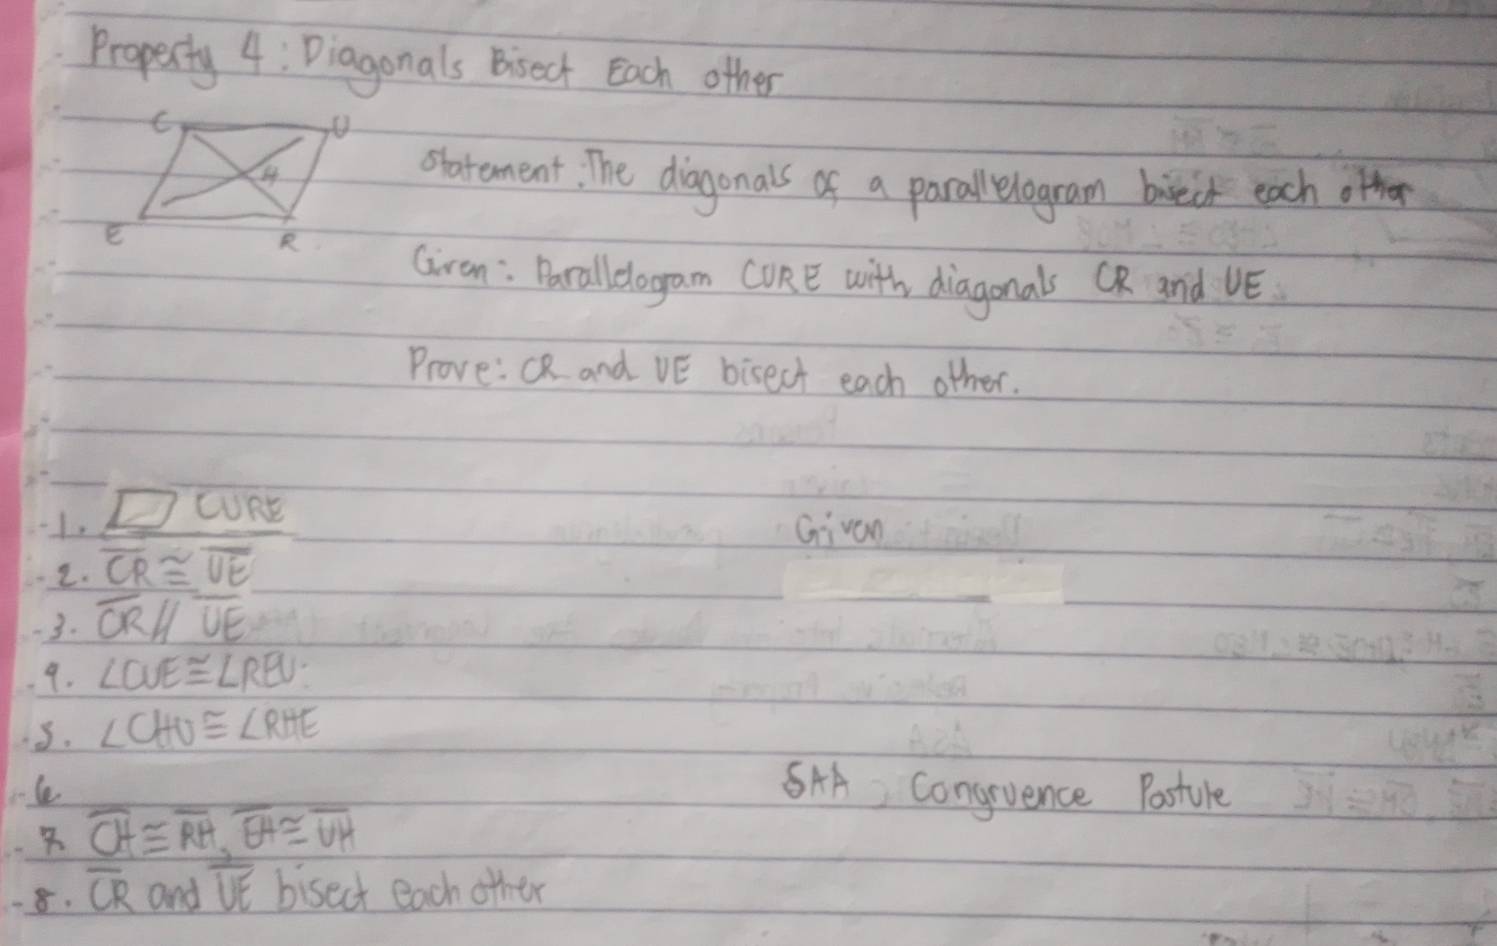 Property 4: Diagonals Bisect Each other
C U
H
E R
Statement: The diagonals of a parallelogram bisect each other
Given: Parallelogram CURE with diagonals CR and UE.
Prove: CR and UE bisect each other.
1. ▱ CURE Given
2. C̅R̅ ≅ U̅E̅
3. C̅R̅ // U̅E̅
4. ∠CUE ≅ ∠REU
5. ∠CHU ≅ ∠RHE
6. SAA Congruence Posture
7. C̅H̅ ≅ R̅H̅, E̅H̅ ≅ U̅H̅
8. C̅R̅ and U̅E̅ bisect each other